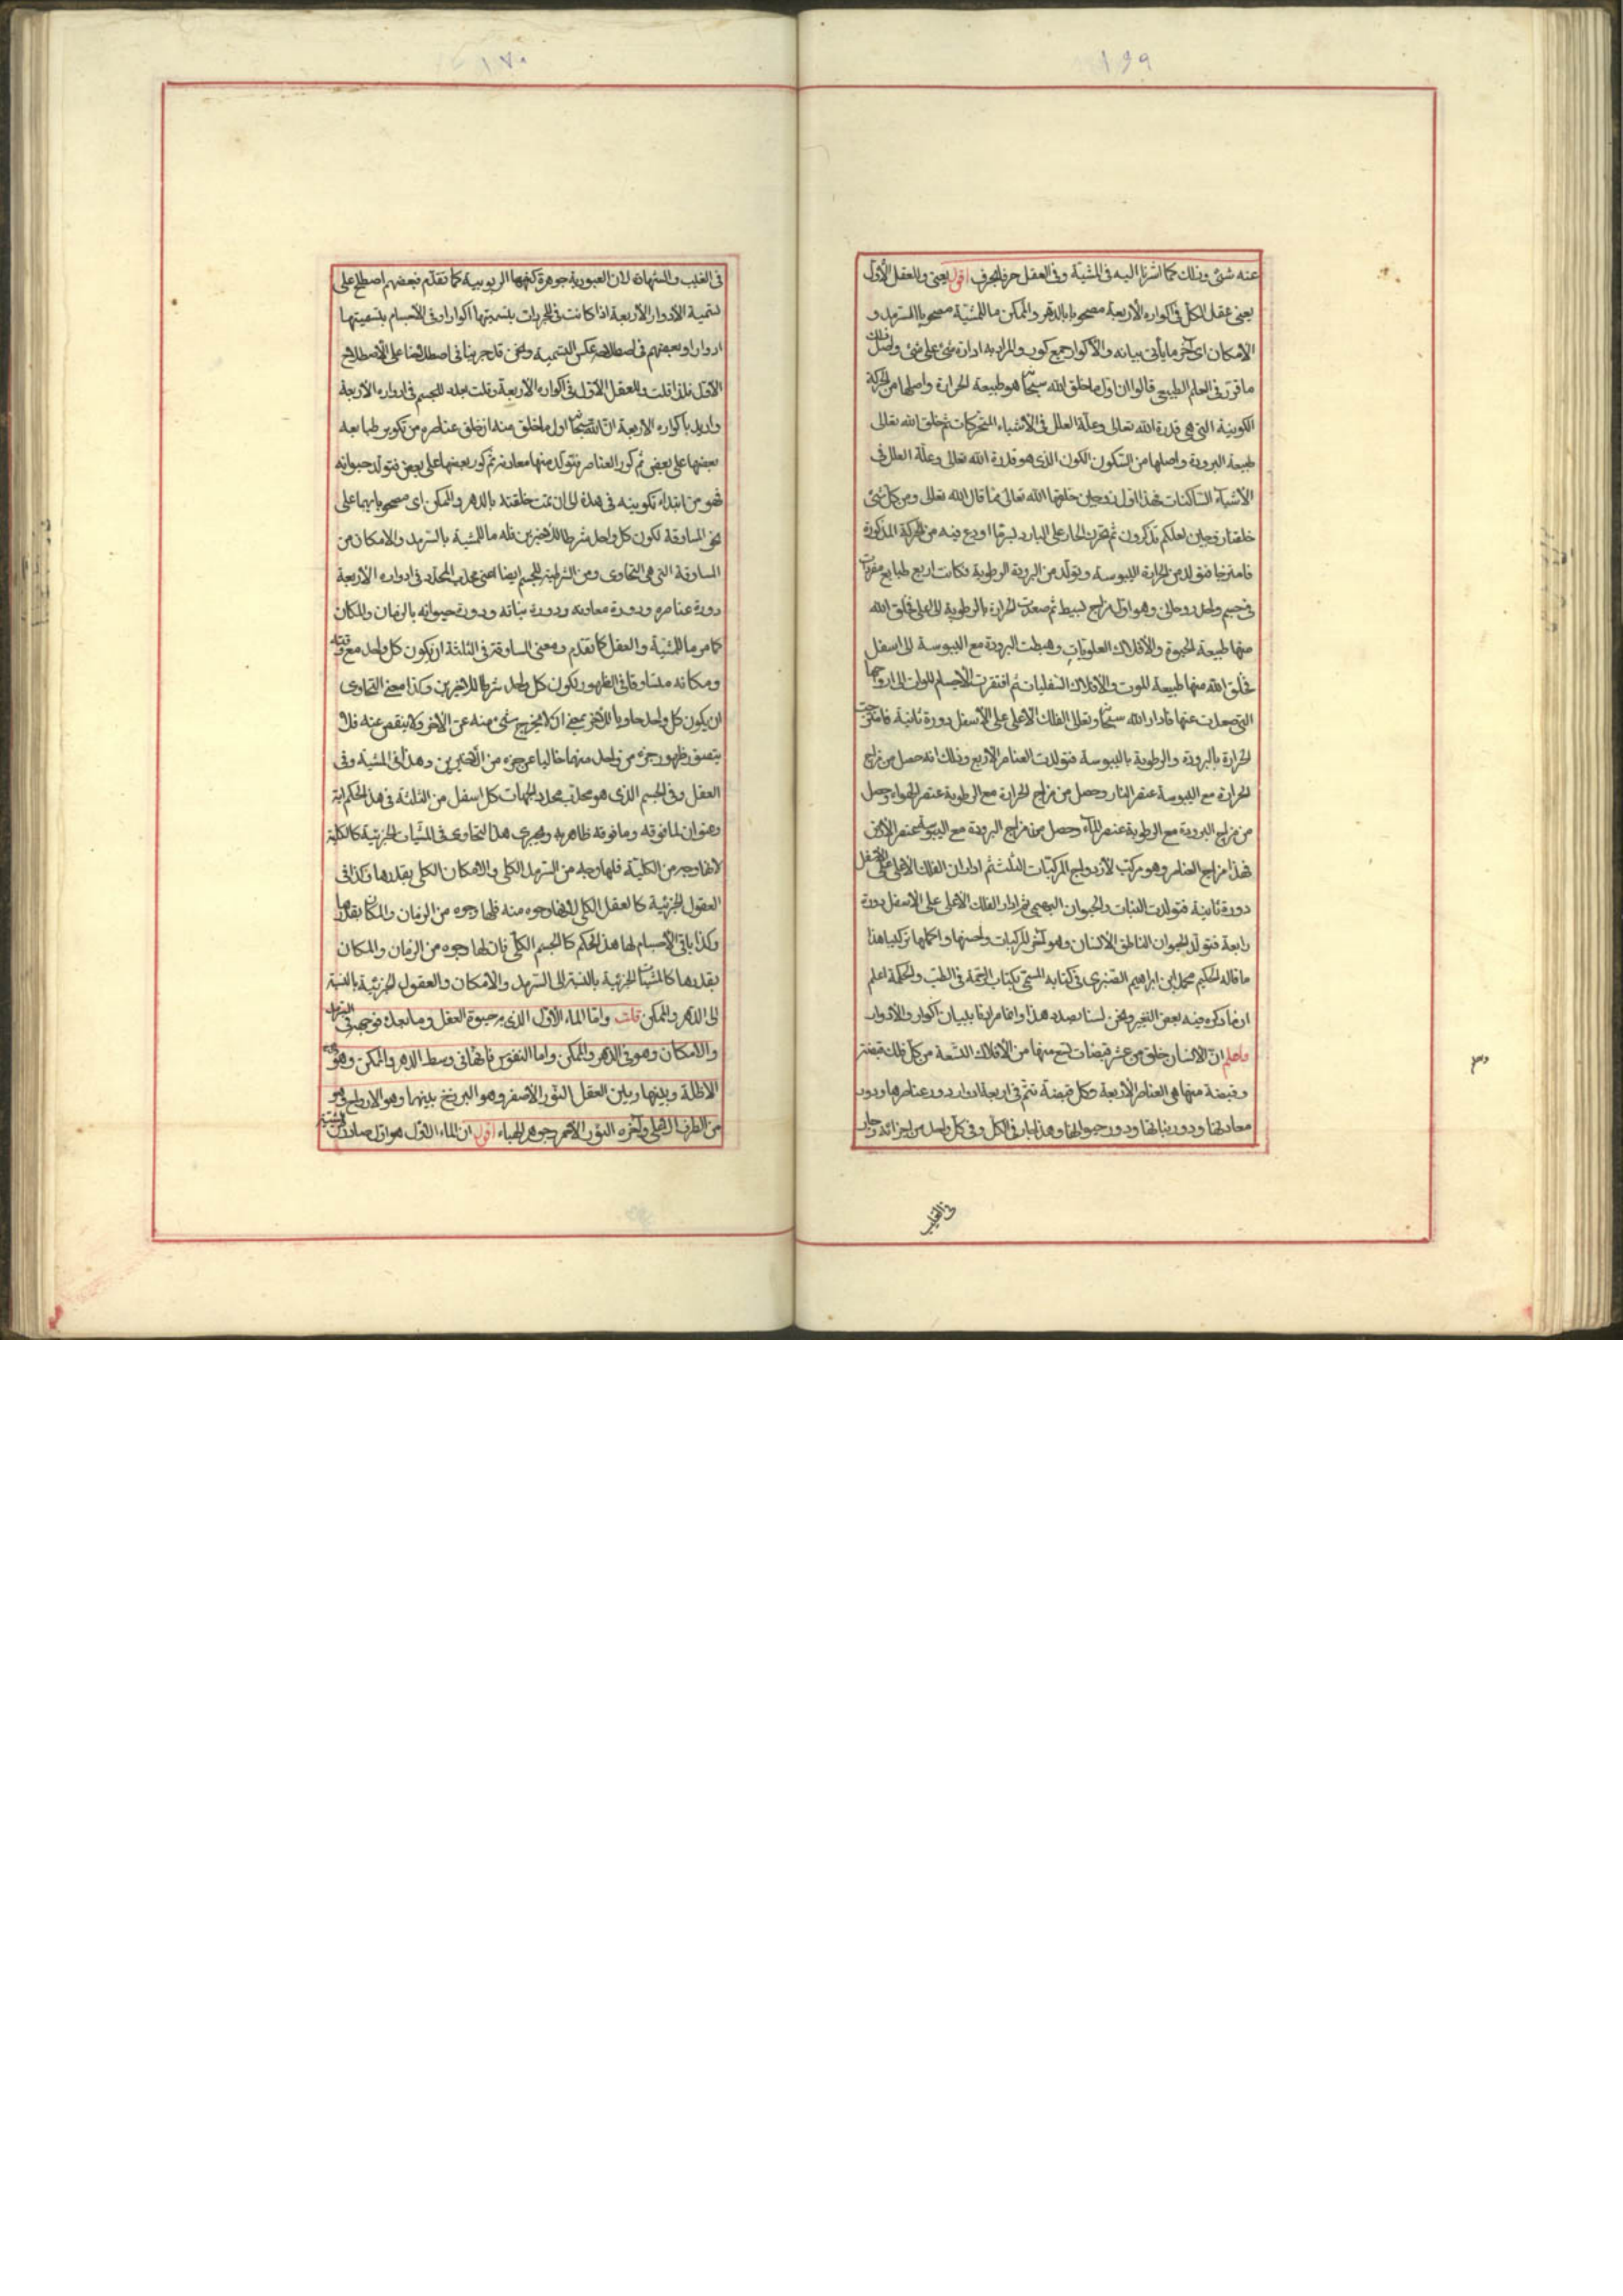 ١٦٩
عنه شئ وذلك كما اشرنا اليه فى المشيّة وفى العقل حرفا بحرف اقول يعنى وللعقل الأوّل
يعنى عقل الكل فى اكواره الأربعة مصحوبا بالدهر والممكن ما للمشيّة مصحوبا بالسّرمد و
الأمكان اى آخر ما يأتى بيانه والأكوار جمع كور والمراد به ادارة شئ على شئ واصل ذلك
ما قرّر فى العلم الطبيعى قالوا ان اول ما خلق الله سبحانه هو طبيعة الحرارة واصلها من الحركة
الكونية التى هى قدرة الله تعالى وعلّة العلل فى الأشياء المتحركات ثم خلق الله تعالى
طبيعة البرودة واصلها من السّكون الكون الذى هو قدرة الله تعالى وعلّة العلل فى
الأشياء السّاكنات فهذا اول زوجين خلقهما الله تعالى كما قال الله تعالى ومن كل شئ
خلقنا زوجين لعلكم تذكرون ثم تحرّك الحار على البارد بسرّ ما اودع فيه من الحركة المذكورة
فامتزجا فتولد من الحرارة اليبوسة وتولّد من البرودة الرطوبة فكانت اربع طبايع مفردات
فى جسم واحد روحانى وهو اول مزاج بسيط ثم صعدت الحرارة بالرطوبة الى اعلى فخلق الله
منها طبيعة الحيوة والأفلاك العلويّات وهبطت البرودة مع اليبوسة الى اسفل
فخلق الله منها طبيعة الموت والأفلاك السفليات ثم افتقرت الأجسام الموات الى ارواحها
التى صعدت عنها فادار الله سبحانه وتعالى الفلك الأعلى على الأسفل دورة ثانية فامتزجت
الحرارة بالبرودة والرطوبة باليبوسة فتولدت العناصر الأربع وذلك انه حصل من مزاج
الحرارة مع اليبوسة عنصر النار وحصل من مزاج الحرارة مع الرطوبة عنصر الهواء وحصل
من مزاج البرودة مع الرطوبة عنصر الماء وحصل من مزاج البرودة مع اليبوسة عنصر الأرض
فهذا مزاج العناصر وهو مركب الأزدواج المركبّات الثلث ثم ادار الفلك الأعلى على الأسفل
دورة ثانية فتولدت النبات والحيوان البهيمى ثم ادار الفلك الأعلى على الأسفل دورة
رابعة فتولد الحيوان الناطق الأنسان وهو آخر المركبات واحسنها واكملها تركيبا هذا
ما قاله الحكيم محمد بن ابراهيم الصنبرى فى كتابه المسمّى بكتاب الرحمة فى الطب والحكمة اعلم
ان ما ذكره فيه بعض التغير ونحن لسنا بصدد هذا وانما مرادنا بيان اكوار والأدوار
واعلم انّ الأنسان خلق من عشر قبضات تسع منها من الأفلاك التّسعة من كل فلك قبضة
وقبضة منها هى العناصر الأربعة وكل قبضة تتمّ فى اربعة ادوار دور عناصرها ودور
معادنها ودور نباتها ودور حيوانها وهذا جار فى الكل وفى كل واحد من اجزائه وجار
فى الغيب
١٧٠
فى الغيب والشهادة لان العبودية جوهرة كنهها الربوبية كما تقدّم فبعضهم اصطلح على
تسمية الأدوار الأربعة اذا كانت فى المجردات بتسميتها اكوارا وفى الأجسام بتسميتها
ادوارا وبعضهم فى اصطلاحه عكس التسمية ونحن قد جرينا فى اصطلاحنا على الأصطلاح
الأول فلذا قلت وللعقل الأول فى اكواره الأربعة وقلت بعده للجسم فى ادواره الأربعة
واريد باكواره الأربعة انّ الله سبحانه اول ما خلق منه ان خلق عناصره من تكوير طبايعه
بعضها على بعض ثم كور العناصر فتولد منها معادنه ثم كور بعضها على بعض فتولد حيوانه
فهو من ابتداء تكوينه فى هذه الى ان تمت خلقته بالدهر والممكن اى مصحوبا بهما على
نحو المساوقة لكون كل واحد شرطا للأخيرين فله ما للمشية بالسّرمد والأمكان من
المساوقة التى هى التحاوى ومن الشرطية للجسم ايضا اعنى محدب المحدّد فى ادواره الأربعة
دورة عناصره ودورة معادنه ودورة نباته ودورة حيوانه بالزمان والمكان
كما مر ما للمشيّة والعقل كما تقدم ومعنى المساوقة فى الثلثة ان يكون كل واحد مع وقته
ومكانه متساوقا فى الظهور لكون كل واحد شرطا للأخيرين وكذا معنى التحاوى
ان يكون كل واحد حاويا للآخر بمعنى ان لا يخرج شئ منه عن الآخر ولا ينقص عنه فلا
يتصوّر ظهور جزء من واحد منها خاليا عن جزء من الأخيرين وهذا فى المشية وفى
العقل وفى الجسم الذى هو محدّب محدد الجهات كل اسفل من الثلثة فى هذا الحكم آية
وعنوان لما فوقه وما فوقه ظاهر به ويجرى هذا التحاوى فى المشيّات الجزئية كالكلية
لأنها وجه من الكليّة فلها وجه من السّرمد الكلى والامكان الكلى بقدرها وكذا فى
العقول الجزئية كالعقل الكلى لأنها وجوه منه فلها وجوه من الزمان والمكان بقدرها
وكذا باقى الأجسام لها هذا الحكم كالجسم الكلّى فان لها وجوه من الزمان والمكان
بقدرها كالمشيّات الجزئية بالنسبة الى السّرمد والأمكان والعقول الجزئية بالنسبة
الى الدهر والممكن قلت وامّا الماء الأول الذى به حيوة العقل وما بعده فوجهه فى السّرمد
والأمكان وهو فى الدهر والممكن واما النفوس فانها فى وسط الدهر والممكن وهو
الأظلة وبينها وبين العقل النّور الأصفر وهو البرزخ بينهما وهو الارواح وهو
من الطرف الأعلى وآخره النّور الأحمر جوهر الهباء اقول ان الماء الأول هو اول صادر عن المشية